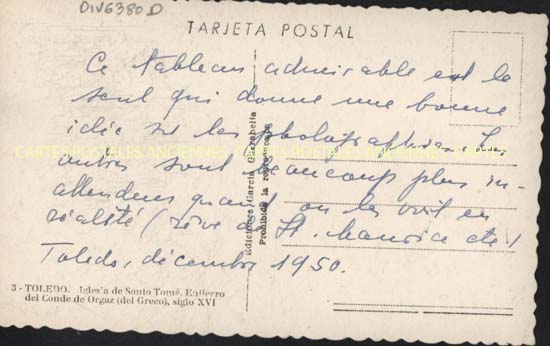 DIV6380D
TARJETA POSTAL
Ce tableau admirable est le
seul qui donne une bonne
idée sur les photographies. Les
autres sont beaucoup plus in-
attendus quand on les voit en
réalité (rêve St. Maurice etc)
Toledo, décembre 1950.
Ediciones García Garrabella
Prohibida la reproducción
CARTES POSTALES ANCIENNES
3 - TOLEDO. Iglesia de Santo Tomé. Entierro
del Conde de Orgaz (del Greco), siglo XVI